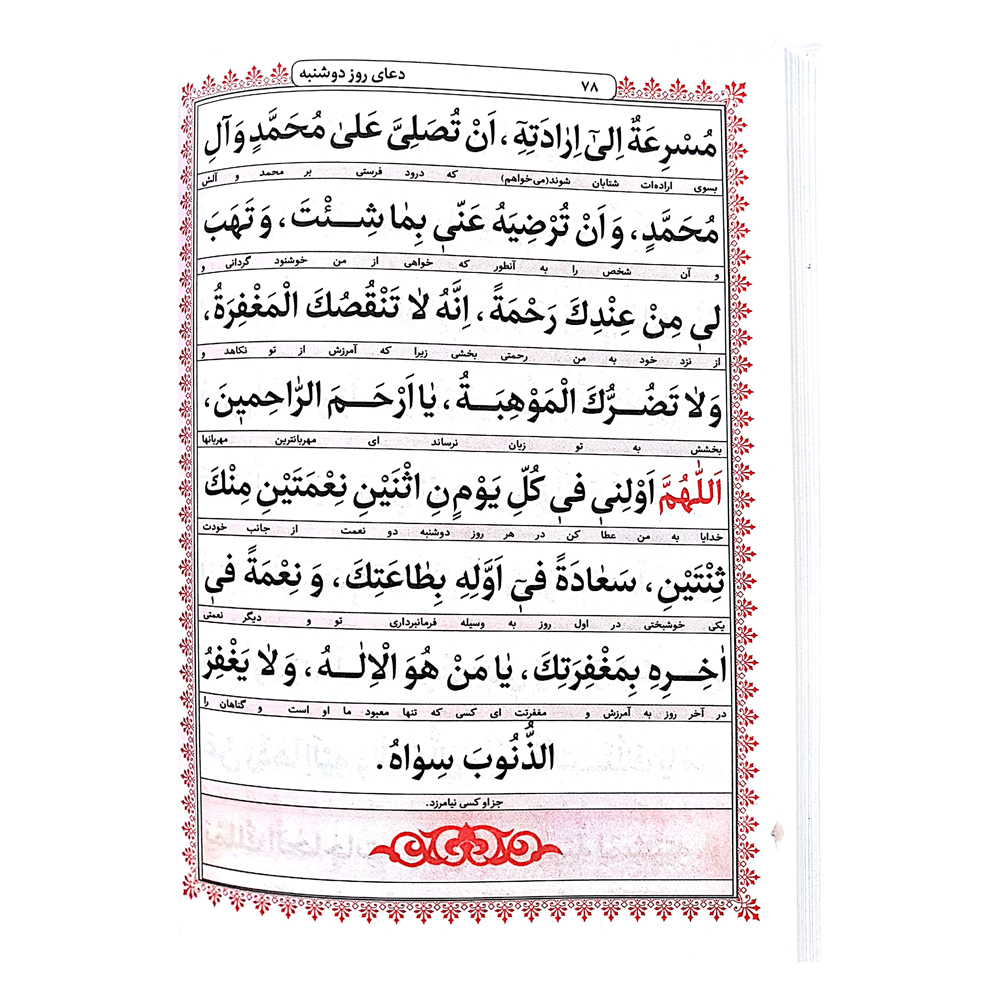 دعای روز دوشنبه
۷۸
مُسْرِعَةٌ اِلىٰٓ اِرٰادَتِهِٓ ، اَنْ تُصَلِّىَ عَلىٰ مُحَمَّدٍ وَ آلِ
بسوی اراده‌ات شتابان شوند(می‌خواهم) که درود فرستی بر محمد و آلش
مُحَمَّدٍ ، وَ اَنْ تُرْضِيَهُ عَنّىٖ بِمٰا شِــئْتَ ، وَ تَهَبَ
و آن شخص را به آنطور که خواهی از من خوشنود گردانی و
لىٖ مِنْ عِنْدِكَ رَحْمَةً ، اِنَّهُ لاٰ تَنْقُصُكَ الْمَغْفِرَةُ ،
از نزد خود به من رحمتی بخشی زیرا که آمرزش از تو نکاهد و
وَلاٰ تَضُــرُّكَ الْمَوْهِبَــةُ ، يٰا اَرْحَــمَ الرّٰاحِمىٖنَ ،
بخشش به تو زیان نرساند ای مهربانترین مهربانها
اَللّٰهُمَّ اَوْلِنىٖ فىٖ كُلِّ يَوْمٍ نِ اثْنَيْنِ نِعْمَتَيْنِ مِنْكَ
خدایا به من عطا کن در هر روز دوشنبه دو نعمت از جانب خودت
ثِنْتَيْنِ ، سَعٰادَةً فىٖٓ اَوَّلِهِ بِطٰاعَتِكَ ، وَ نِعْمَةً فىٖٓ
یکی خوشبختی در اول روز به وسیله فرمانبرداری تو و دیگر نعمتی
اٰخِــرِهِ بِمَغْفِرَتِكَ ، يٰا مَنْ هُوَ الْاِلٰــهُ ، وَ لاٰ يَغْفِرُ
در آخر روز به آمرزش و مغفرتت ای کسی که تنها معبود ما او است و گناهان را
الذُّنُوبَ سِوٰاهُ .
جز او کسی نیامرزد.